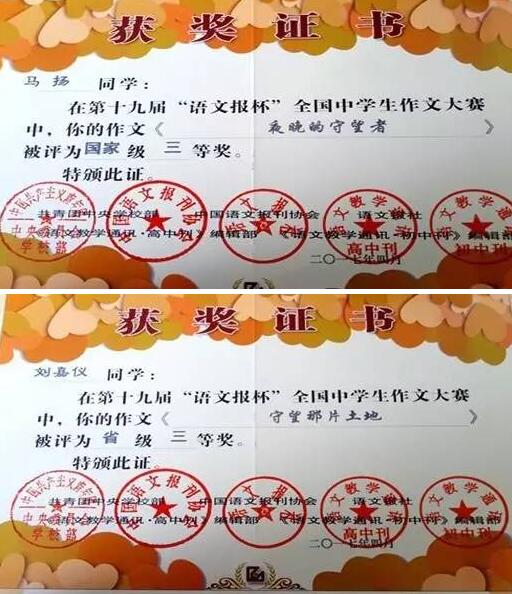 获奖证书
马扬 同学：
在第十九届“语文报杯”全国中学生作文大赛
中，你的作文《 夜晚的守望者 》
被评为国家级 三 等奖。
特颁此证。
共青团中央学校部 中国语文报刊协会 语文报社
《语文教学通讯·高中刊》编辑部 《语文教学通讯·初中刊》编辑部
高中刊
初中刊
二〇一七年四月
获奖证书
刘嘉仪 同学：
在第十九届“语文报杯”全国中学生作文大赛
中，你的作文《 守望那片土地 》
被评为 省 级 三 等奖。
特颁此证。
共青团中央学校部 中国语文报刊协会 语文报社
《语文教学通讯·高中刊》编辑部 《语文教学通讯·初中刊》编辑部
高中刊
初中刊
二〇一七年四月